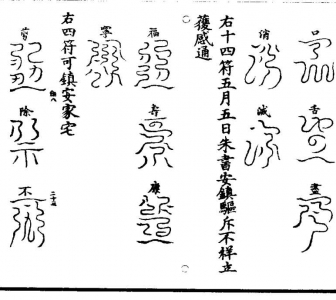 口
舌
盡
消
滅
右十四符五月五日朱書安鎮驅斥不祥立
獲感通
福
壽
康
寧
右四符可鎮安家宅
除
不